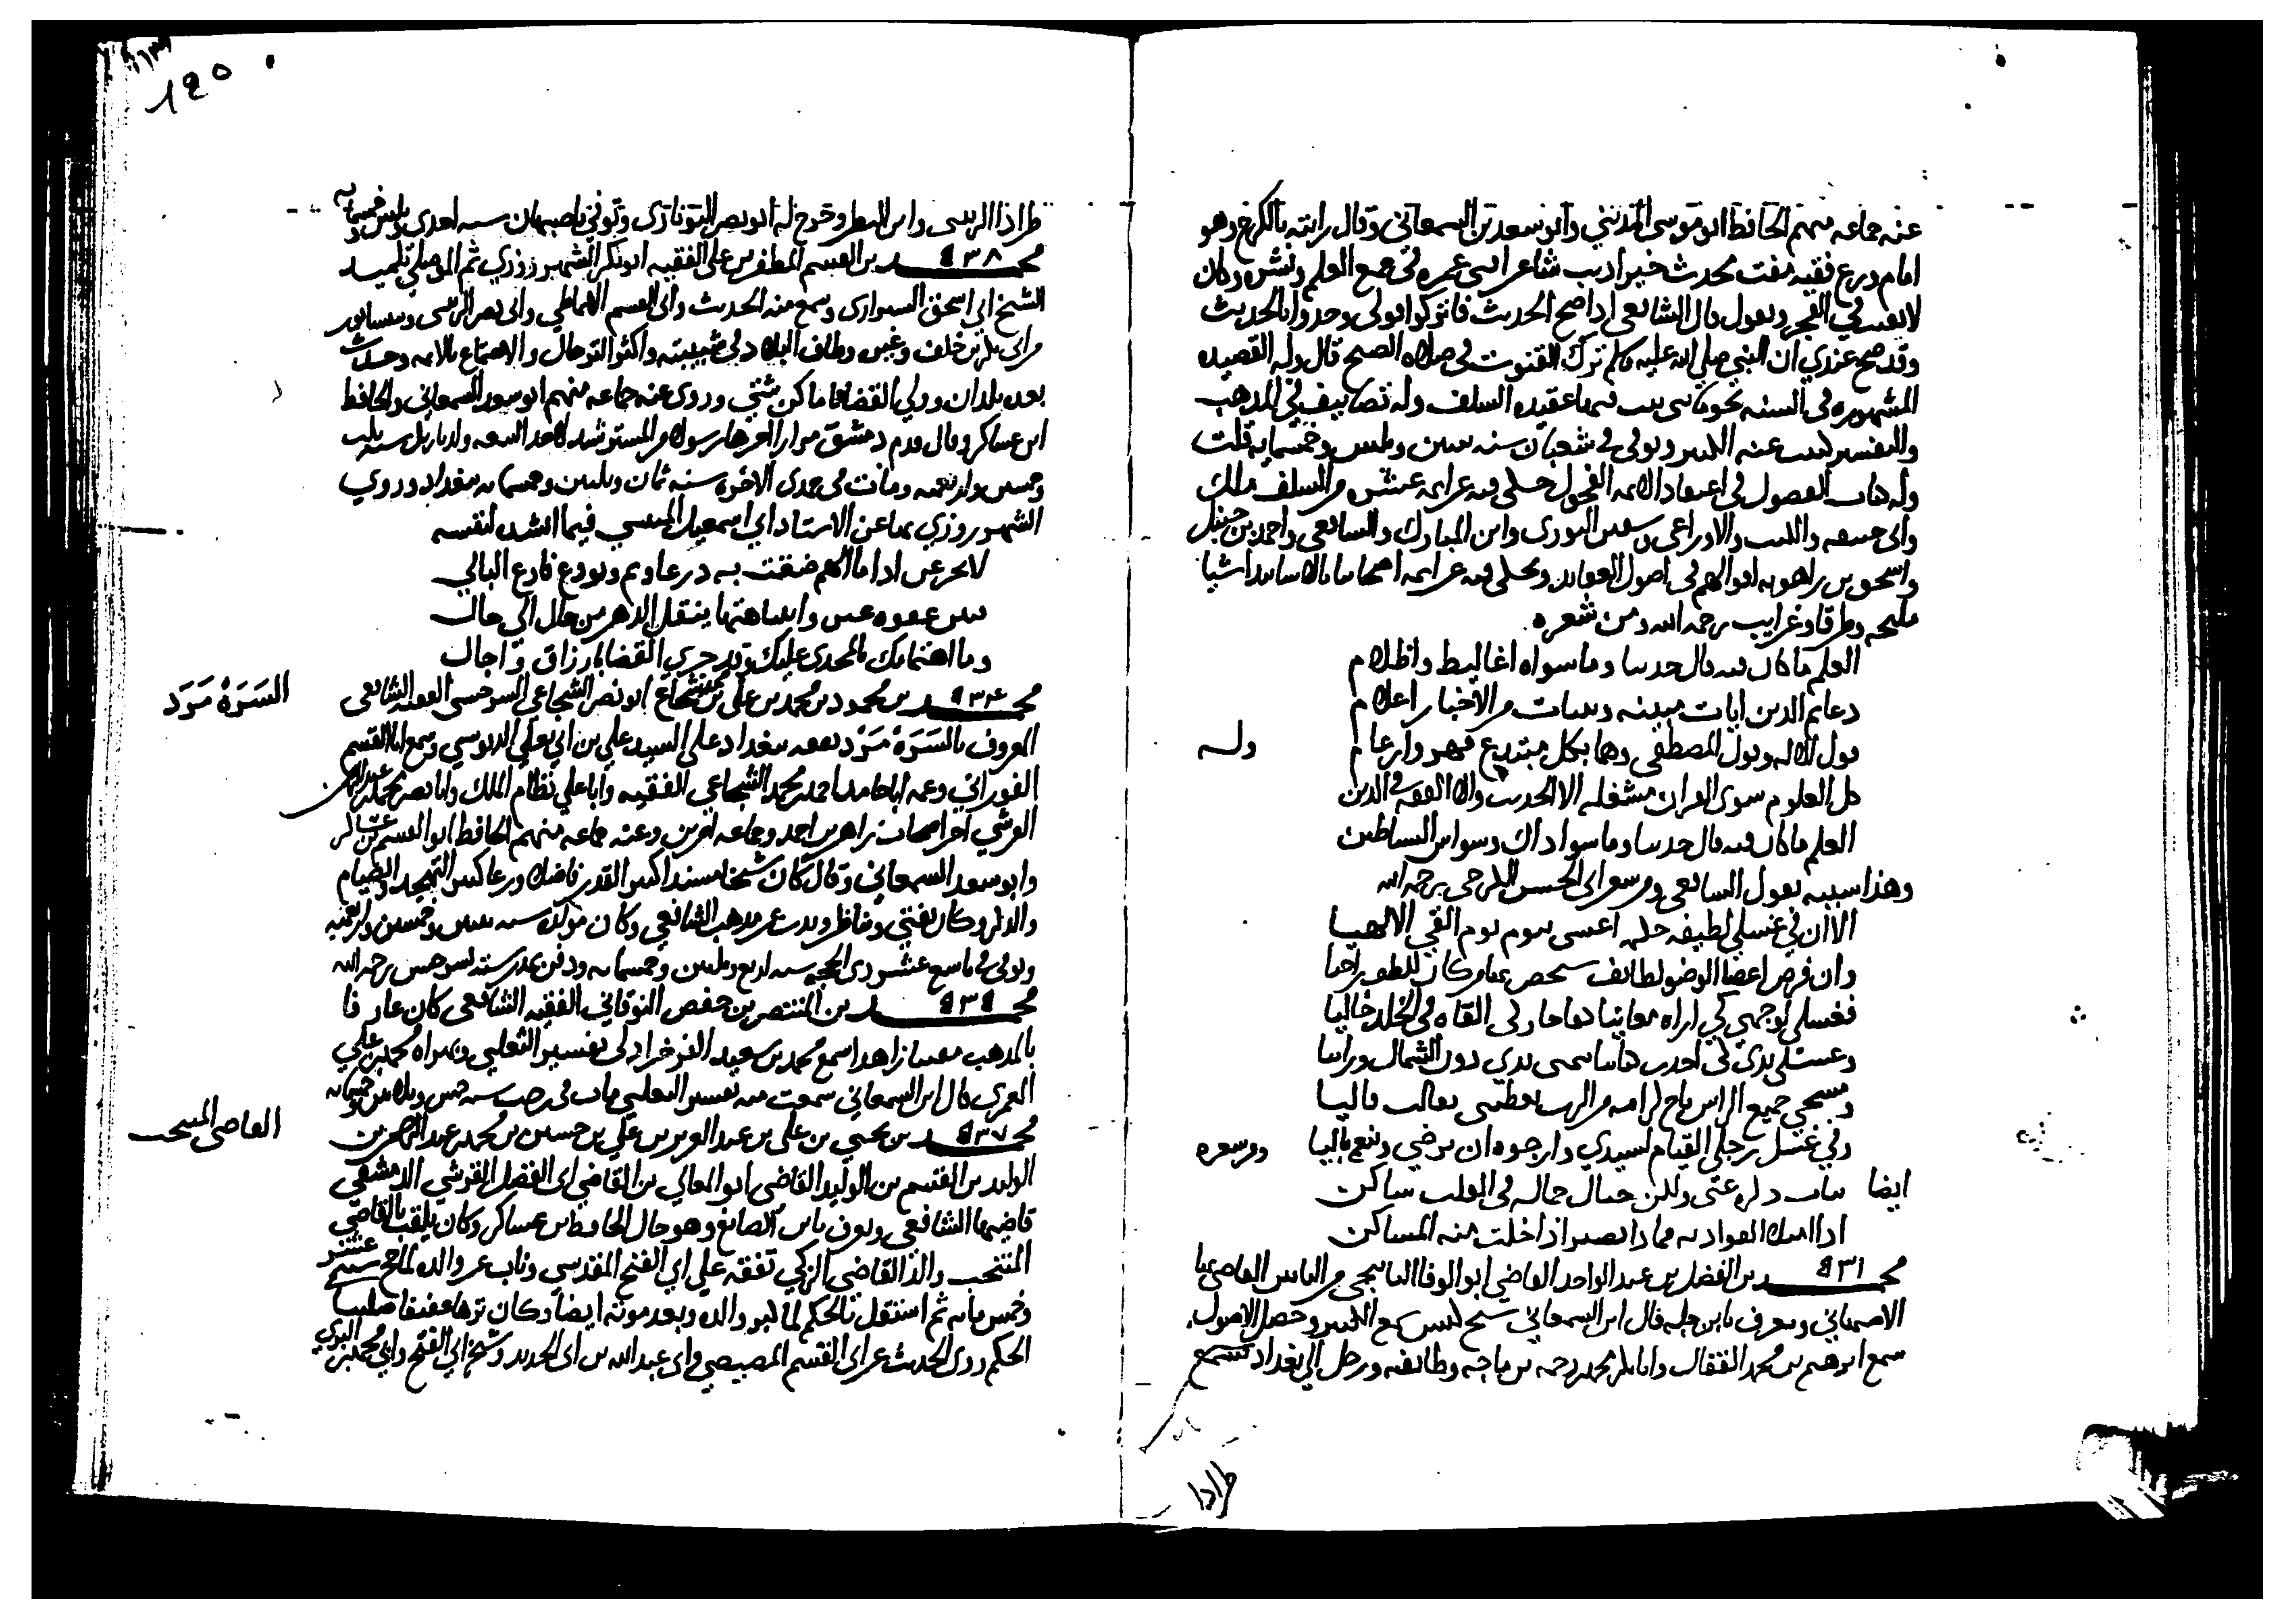 عنه جماعه منهم الحافظ ابو موسى المديني وابو سعد بن السمعاني وقال رايته بالكرخ وهو
امام ورع فقيه مفت محدث خير اديب شاعر افنى عمره في جمع العلم ونشره وكان
لا يقنت في الفجر ويقول قال الشافعي اذا صح الحديث فاتركوا قولي وخذوا بالحديث
وقد صح عندي ان النبي صلى الله عليه وسلم ترك القنوت في صلاه الصبح قال وله القصيده
المشهوره في السنه نحو مائتي بيت شرح فيها عقيده السلف وله تصانيف في المذهب
والتفسير كتبت عنه الكثير وتوفي في شعبان سنه اثنتين وثلثين وخمسمايه قلت
وله كتاب الفصول في اعتقاد الائمه الفحول حكى فيه عن ائمه عشره من السلف مالك
وابي حنيفه والليث والاوزاعي وسفين الثوري وابن المبارك والشافعي واحمد بن حنبل
واسحق بن راهويه اقوالهم في اصول العقايد ويحكي فيه عن ائمه اصحابنا بالاسانيد اشيا
مليحه وطرقا وغرايب رحمه الله ومن شعره
العلم ما كان فيه قال حدثنا وما سواه اغاليط واظلام
دعايم الدين ايات مبينه وبينات من الاخبار اعلام
قول الاله وقول المصطفى وهما بكل مبتدع قهر وارغام
وله
كل العلوم سوى القران مشغله الا الحديث والا الفقه في الدين
العلم ما كان فيه قال حدثنا وما سوا ذاك وسواس الشياطين
وهذا شبيه بقول الشافعي ومن شعر ابي الحسن الكرجي رحمه الله
الا ان في غسلي لطيفه
وان فرض اعضا الوضو لطائف
فغسلي لوجهي كي اراه معاينا في القاه في الخلد خاليا
يدي دون الشمال ورائيا
ومسحي جميع الراس تاج كرامه
وفي غسل رجلي القيام لسيدي وارجوه ان يرضى
ومن شعره
ايضا
تناءت داره عني ولكن خيال جماله في القلب ساكن
اذا امتلا الفواد به فماذا يضر اذا خلت منه المساكن
محمد بن الفضل بن عبد الواحد القاضي ابو الوفا
الاصبهاني ويعرف بابن جله قال ابن السمعاني شيخ كبير سمع الكثير وحصل الاصول
سمع ابرهيم بن محمد القفال وابا بكر محمد بن احمد بن ماجه وطائفه ورحل الى بغداد فسمع
طرادا
١٤٥
طرادا الزينبي وابن البطر وخرج له ابو نصر اليونارتي وتوفي باصبهان سنه احدى وثلثين وخمسمايه
محمد بن القسم بن المظفر بن علي الفقيه ابو بكر الشهرزوري ثم الموصلي تلميذ
الشيخ ابي اسحق الشيرازي وسمع منه الحديث وابي القسم الانماطي وابي نصر الزينبي وبنيسابور
من ابي بكر بن خلف وغيره وطاف البلاد في شبيبته واكثر الترحال والاجتماع بالائمه وحدث
بعده بلدان وولي القضا باماكن شتى وروى عنه جماعه منهم ابو سعد السمعاني والحافظ
ابن عساكر وقال قدم دمشق مرارا اخرها رسولا من المسترشد لاخذ البيعه ولد باربل سنه ثلث
وخمسين واربعمايه ومات في جمدى الاخره سنه ثمان وثلثين وخمسمايه ببغداد وروى
الشهرزوري عن الاستاذ ابي اسمعيل فيما انشد لنفسه
لا تجزعن اذا ما الهم ضقت به ذرعا ونم وتودع فارغ البالي
بين غفوه عين وانتباهتها ينتقل الدهر من حال الى حال
وما اهتمامك بالمجدي عليك وقد جرى القضا بارزاق واجال
محمد بن محمود بن محمد بن علي بن شجاع ابو نصر الشجاعي السرخسي الفقيه الشافعي
السَرَهْ مَرَد
المعروف بالسَرَهْ مَرَدْ تفقه ببغداد على السيد علي بن ابي يعلى الدبوسي وسمع ابا القسم
الفوراني وعمه ابا حامد احمد بن محمد الشجاعي الفقيه وابا علي نظام الملك وابا نصر محمد بن عبد الرحمن
القرشي اخر اصحاب زاهر بن احمد وجماعه اخرين وعنه جماعه منهم الحافظ ابو القسم بن عساكر
وابو سعد السمعاني وقال كان شيخا مسندا كبير القدر فاضلا ورعا كثير التهجد والصيام
والذكر وكان يفتي ويناظر ويذب عن مذهب الشافعي وكان مولده سنه اثنتين وخمسين واربعمايه
وتوفي في تاسع عشر ذي الحجه سنه اربع وثلثين وخمسمايه ودفن بمدرسته بسرخس رحمه الله
محمد بن المنتصر بن حفص النوقاني الفقيه الشافعي كان عارفا
بالمذهب مفتيا زاهدا سمع محمد بن سعيد الفرخرادي تفسير الثعلبي وبهراه محمد بن علي
العمري قال ابن السمعاني سمعت منه تفسير الثعلبي مات في رجب سنه خمس وثلاثين وخمسمايه
محمد بن يحيى بن علي بن عبد العزيز بن علي بن حسين بن محمد بن عبد الرحمن بن
القاضي المنتجب
الوليد بن القسم بن الوليد القاضي ابو المعالي بن القاضي ابي الفضل القرشي الدمشقي
قاضيها الشافعي ويعرف بابن الصايغ وهو خال الحافظ بن عساكر وكان يلقب بالقاضي
المنتجب والد القاضي الزكي تفقه على ابي الفتح المقدسي وناب عن والده لما حج سنه عشر
وخمس مايه ثم استقل بالحكم لما كبر والده وبعد موته ايضا وكان نزها عفيفا صليبا
الحكم روى الحديث عن ابي القسم المصيصي وابي عبد الله بن ابي الحديد وشيخه ابي الفتح وابي محمد بن البري